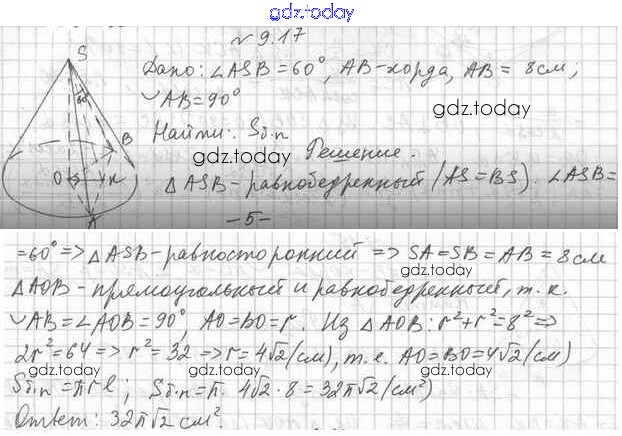 gdz.today
№ 9.17
Дано: ∠ASB=60°, AB-хорда, AB = 8 см;
◡AB=90°
gdz.today
Найти: Sб.п
gdz.today
Решение.
△ASB - равнобедренный (AS=BS). ∠ASB=
S
60°
B
O
K
A
-5-
=60° => △ASB - равносторонний => SA=SB=AB=8 см
gdz.today
△AOB - прямоугольный и равнобедренный, т.к.
◡AB=∠AOB=90°, AO=BO=r. Из △AOB: r²+r²=8² =>
2r²=64 => r²=32 => r=4√2 (см), т.е. AO=BO=4√2 (см)
gdz.today
Sб.п = πrl; Sб.п = π·4√2·8 = 32π√2 (см²)
Ответ: 32π√2 см².